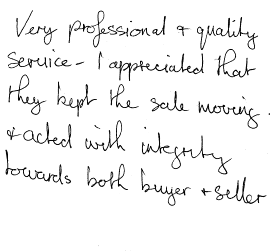 Very professional + quality
service - I appreciated that
they kept the sale moving.
+ acted with integrity
towards both buyer + seller